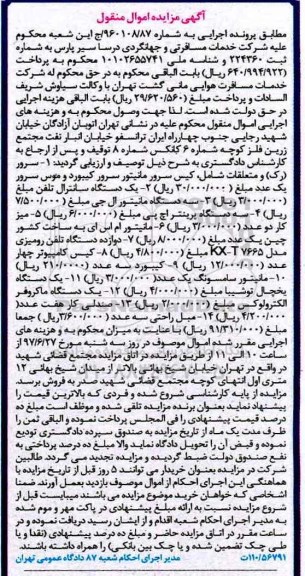 آگهی مزایده اموال منقول
مطابق پرونده اجرایی به شماره ۹۶۰۱۰۸/۸۷/ج این شعبه محکوم
علیه شرکت خدمات مسافرتی و جهانگردی درسا سیر پارس به شماره
ثبت ۲۲۴۳۶۰ و شناسه ملی ۱۰۱۰۲۶۵۵۷۴۱ محکوم به پرداخت
(۶۴۰/۹۹۴/۹۲۲ ریال) بابت الباقی محکوم به در حق محکوم له شرکت
خدمات مسافرت هوایی مانی گشت تهران با وکالت سیاوش شریف
السادات و پرداخت مبلغ (۲۹/۶۲۰/۵۶۱ ریال) بابت الباقی هزینه اجرایی
در حق دولت شده است. لذا جهت وصول محکوم به و هزینه های
اجرایی اموال منقول محکوم علیه در نشانی تهران اتوبان آزادگان خیابان
شهید رجایی جنوب چهارراه ایران ترانسفو خیابان انبار نفت مجتمع
زرین فلز کوچه شماره ۶ کانکس شماره ۸ توقیف و پس از ارجاع به
کارشناس دادگستری به شرح ذیل توصیف و ارزیابی گردید: ۱- سرور
(رک) و متعلقات شامل، کیس سرور مانیتور سرور کیبورد و موس سرور
یک عدد مبلغ (۳۰/۰۰۰/۰۰۰ ریال) ۲- یک دستگاه سانترال تلفن مبلغ
(۴/۰۰۰/۰۰۰ ریال) ۳- سه دستگاه مانیتور ال جی مبلغ (۷/۵۰۰/۰۰۰
ریال) ۴- سه دستگاه پرینتر اچ پی مبلغ (۶/۰۰۰/۰۰۰ ریال) ۵- میز
کار دو عدد (۳/۰۰۰/۰۰۰ ریال) ۶- مانیتور ام اس ای به ساخت کشور
چین یک عدد مبلغ (۸/۰۰۰/۰۰۰ ریال) ۷- دوازده دستگاه تلفن رومیزی
مدل KX-T ۷۶۶۵ مبلغ (۴/۸۰۰/۰۰۰ ریال) ۸- کیس کامپیوتر چهار
عدد (۱۲/۰۰۰/۰۰۰ ریال) ۹- کیبورد سه عدد (۲۱۰/۰۰۰ ریال)
۱۰- مانیتور سامسونگ یک عدد (۳/۰۰۰/۰۰۰ ریال) ۱۱- یک دستگاه
یخچال توشیبا مبلغ (۴/۰۰۰/۰۰۰ ریال) ۱۲- یک دستگاه ماکروفر
الکترولوکس مبلغ (۲/۰۰۰/۰۰۰ ریال) ۱۳- صندلی کار هفت عدد
(۴/۲۰۰/۰۰۰ ریال) ۱۴- مبل راحتی سه عدد (۳/۶۰۰/۰۰۰ ریال) جمعا
مبلغ (۹۱/۳۱۰/۰۰۰ ریال) با عنایت به میزان محکوم به و هزینه های
اجرایی مقرر شده اموال موصوف در روز سه شنبه مورخ ۹۷/۶/۲۷ از
ساعت ۱۰ الی ۱۱ از طریق مزایده در اتاق مزایده مجتمع قضائی شهید
در واقع در تهران خیابان شیخ بهائی بالاتر از میدان شیخ بهائی ۱۲
متری اول انتهای کوچه مجتمع قضائی شهید صدر به فروش برسد.
مزایده از پایه کارشناسی شروع شده و فردی که بالاترین قیمت را
پیشنهاد نماید بعنوان برنده مزایده تلقی شده و موظف است مبلغ ده
درصد قیمت پیشنهادی را فی المجلس پرداخت نموده و الباقی ثمن را
ظرف مدت یک ماه از تاریخ مزایده به صندوق سپرده دادگستری تودیع
نموده و قبض آن را تحویل دادگاه نماید والا مبلغ ده درصد پرداختی به
نفع صندوق دولت ضبط گردیده و مزایده تجدید می گردد. طالبین
شرکت در مزایده بعنوان خریدار می توانند ۵ روز قبل از تاریخ مزایده با
هماهنگی این اجرای احکام از اموال موصوف بازدید بعمل آورند. ضمنا
اشخاصی که خواهان خرید موضوع مزایده می باشند میبایست قبل از
شروع مزایده نسبت به ارائه مبلغ پیشنهادی در پاکت مهر و موم شده
به مدیر اجرای احکام شعبه اقدام و از ایشان رسید دریافت نموده و در
ساعت مقرر در اتاق مزایده حاضر و مبلغ ده درصد پیشنهادی (نقدا و یا
طی چک تضمین شده و یا چک بین بانکی) را همراه داشته باشند.
۱۱۰/۵۶۷۹۱/ت مدیر اجرای احکام شعبه ۸۷ دادگاه عمومی تهران